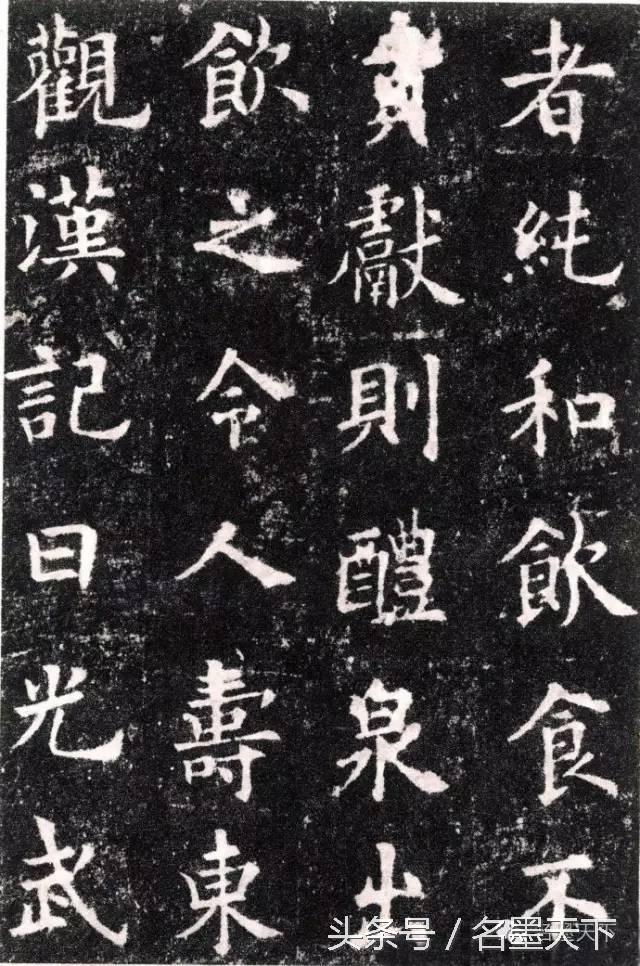 者純和飲食不
貢獻則醴泉出
飲之令人壽東
觀漢記曰光武
头条号 / 名墨天下